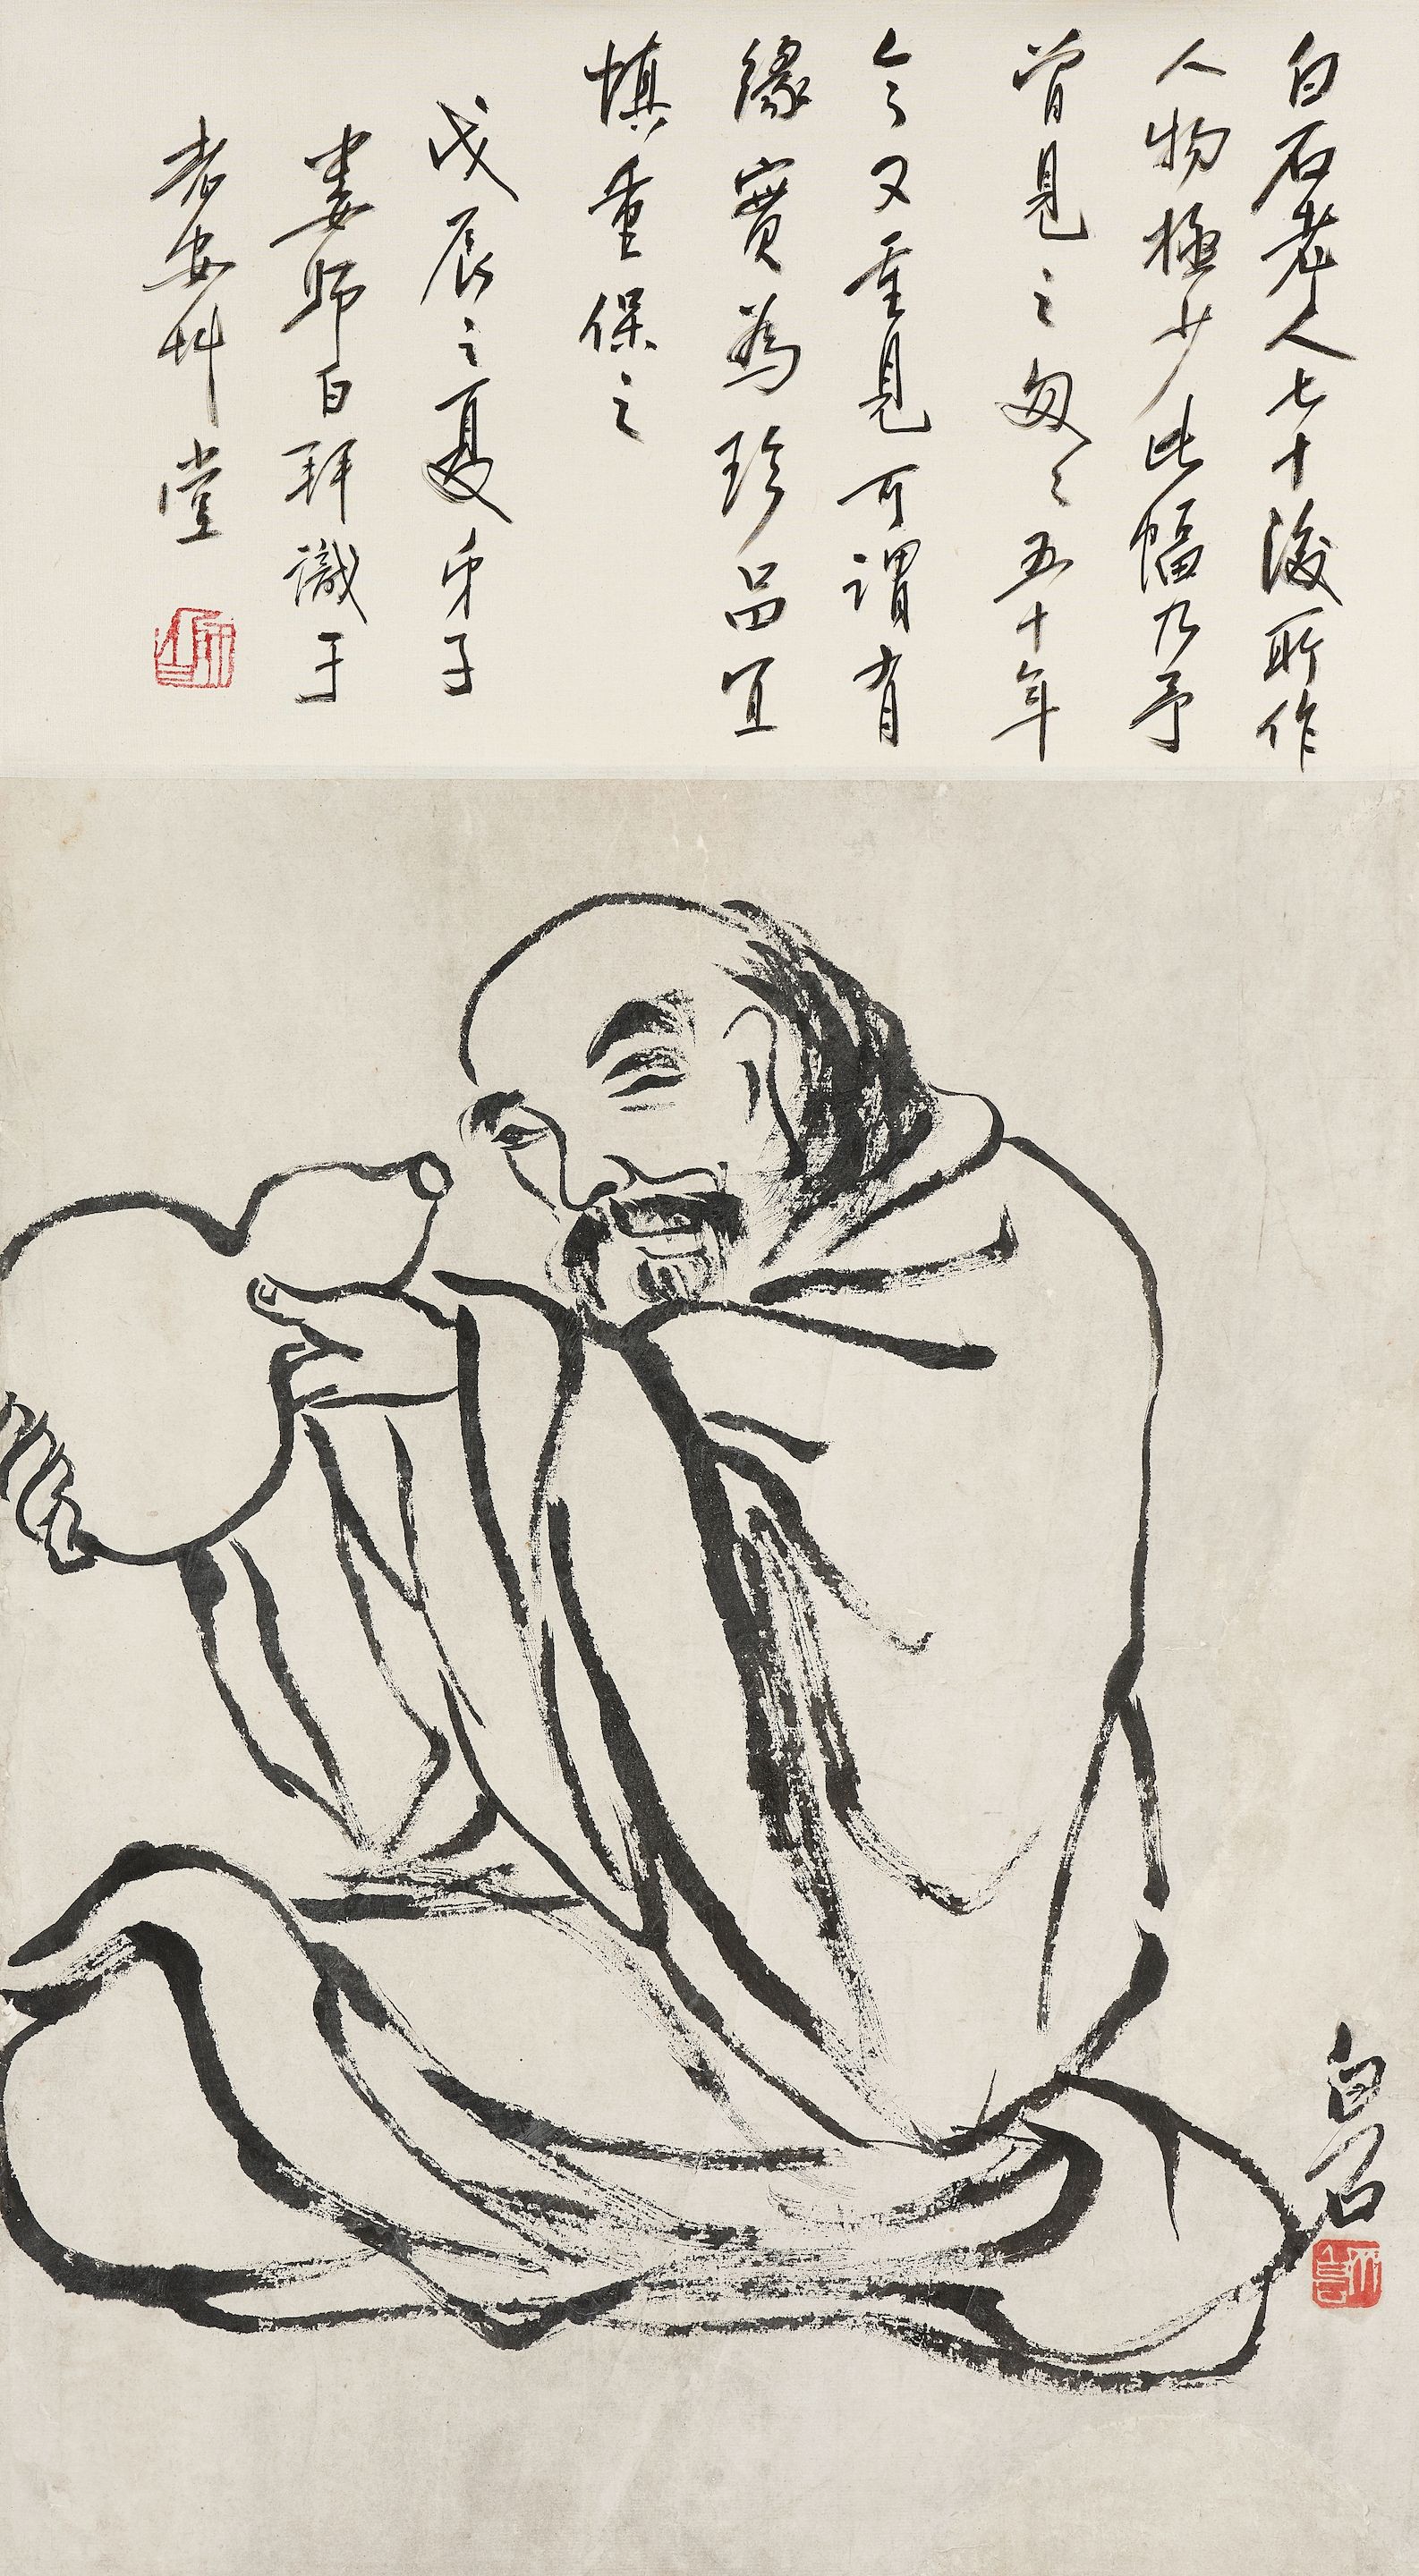 白石老人七十後所作
人物極少此幅乃予
曾見之匆匆五十年
今又重見可謂有
緣實為珍品宜
慎重保之
戊辰之夏弟子
婁師白拜識于
老安艸堂
白石